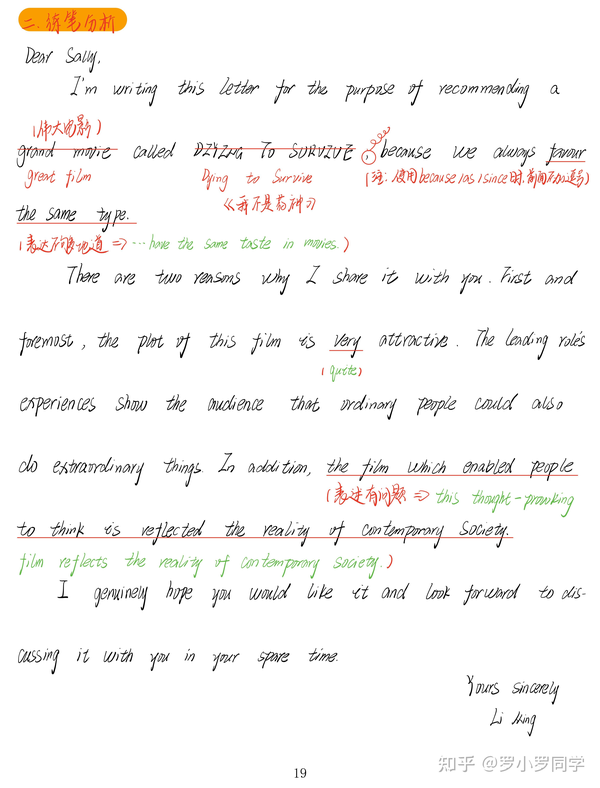 二. 练笔分析
Dear Sally,
I'm writing this letter for the purpose of recommending a
(伟大电影)
grand movie called DZYZNG TO SURVZVE, because we always favour
great film Dying to Survive (注: 使用because/as/since时, 前面不加逗号)
《我不是药神》
the same type.
(表达不够地道 => ...have the same taste in movies.)
There are two reasons why I share it with you. First and
foremost, the plot of this film is very attractive. The leading role's
(quite)
experiences show the audience that ordinary people could also
do extraordinary things. In addition, the film which enabled people
(表达有问题 => this thought-provoking
to think is reflected the reality of contemporary society.
film reflects the reality of contemporary society.)
I genuinely hope you would like it and look forward to dis-
cussing it with you in your spare time.
Yours sincerely
Li
19
知乎 @罗小罗同学